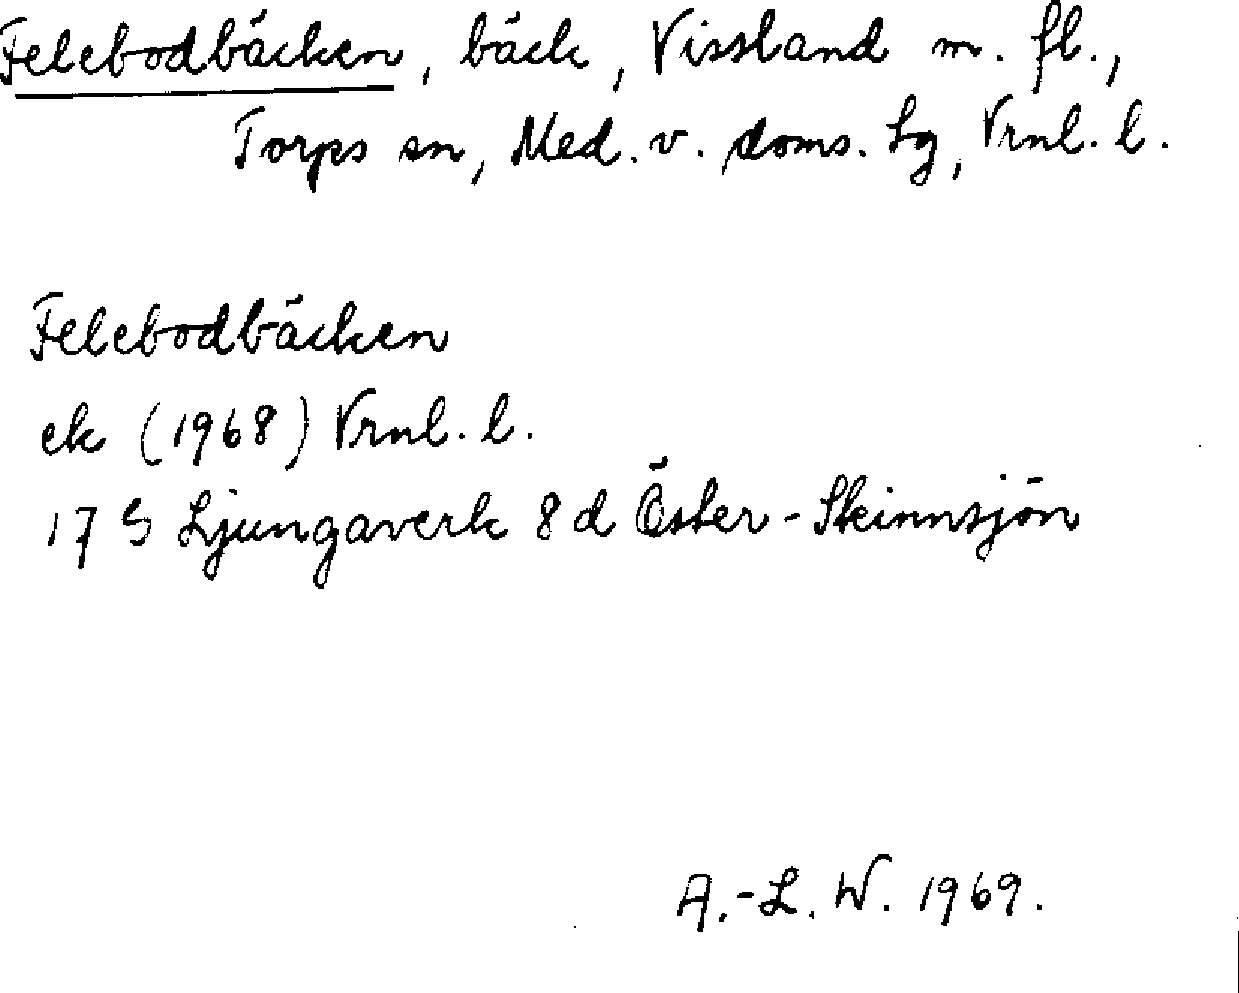 Felebodbäcken, bäck, Vissland m. fl.,
Torps sn, Med. v. doms. Lg, Vrnl. l.
Felebodbäcken
ek (1968) Vrnl. l.
17 G Ljungaverk 8 d Öster-Skinnsjön
A.-L. W. 1969.